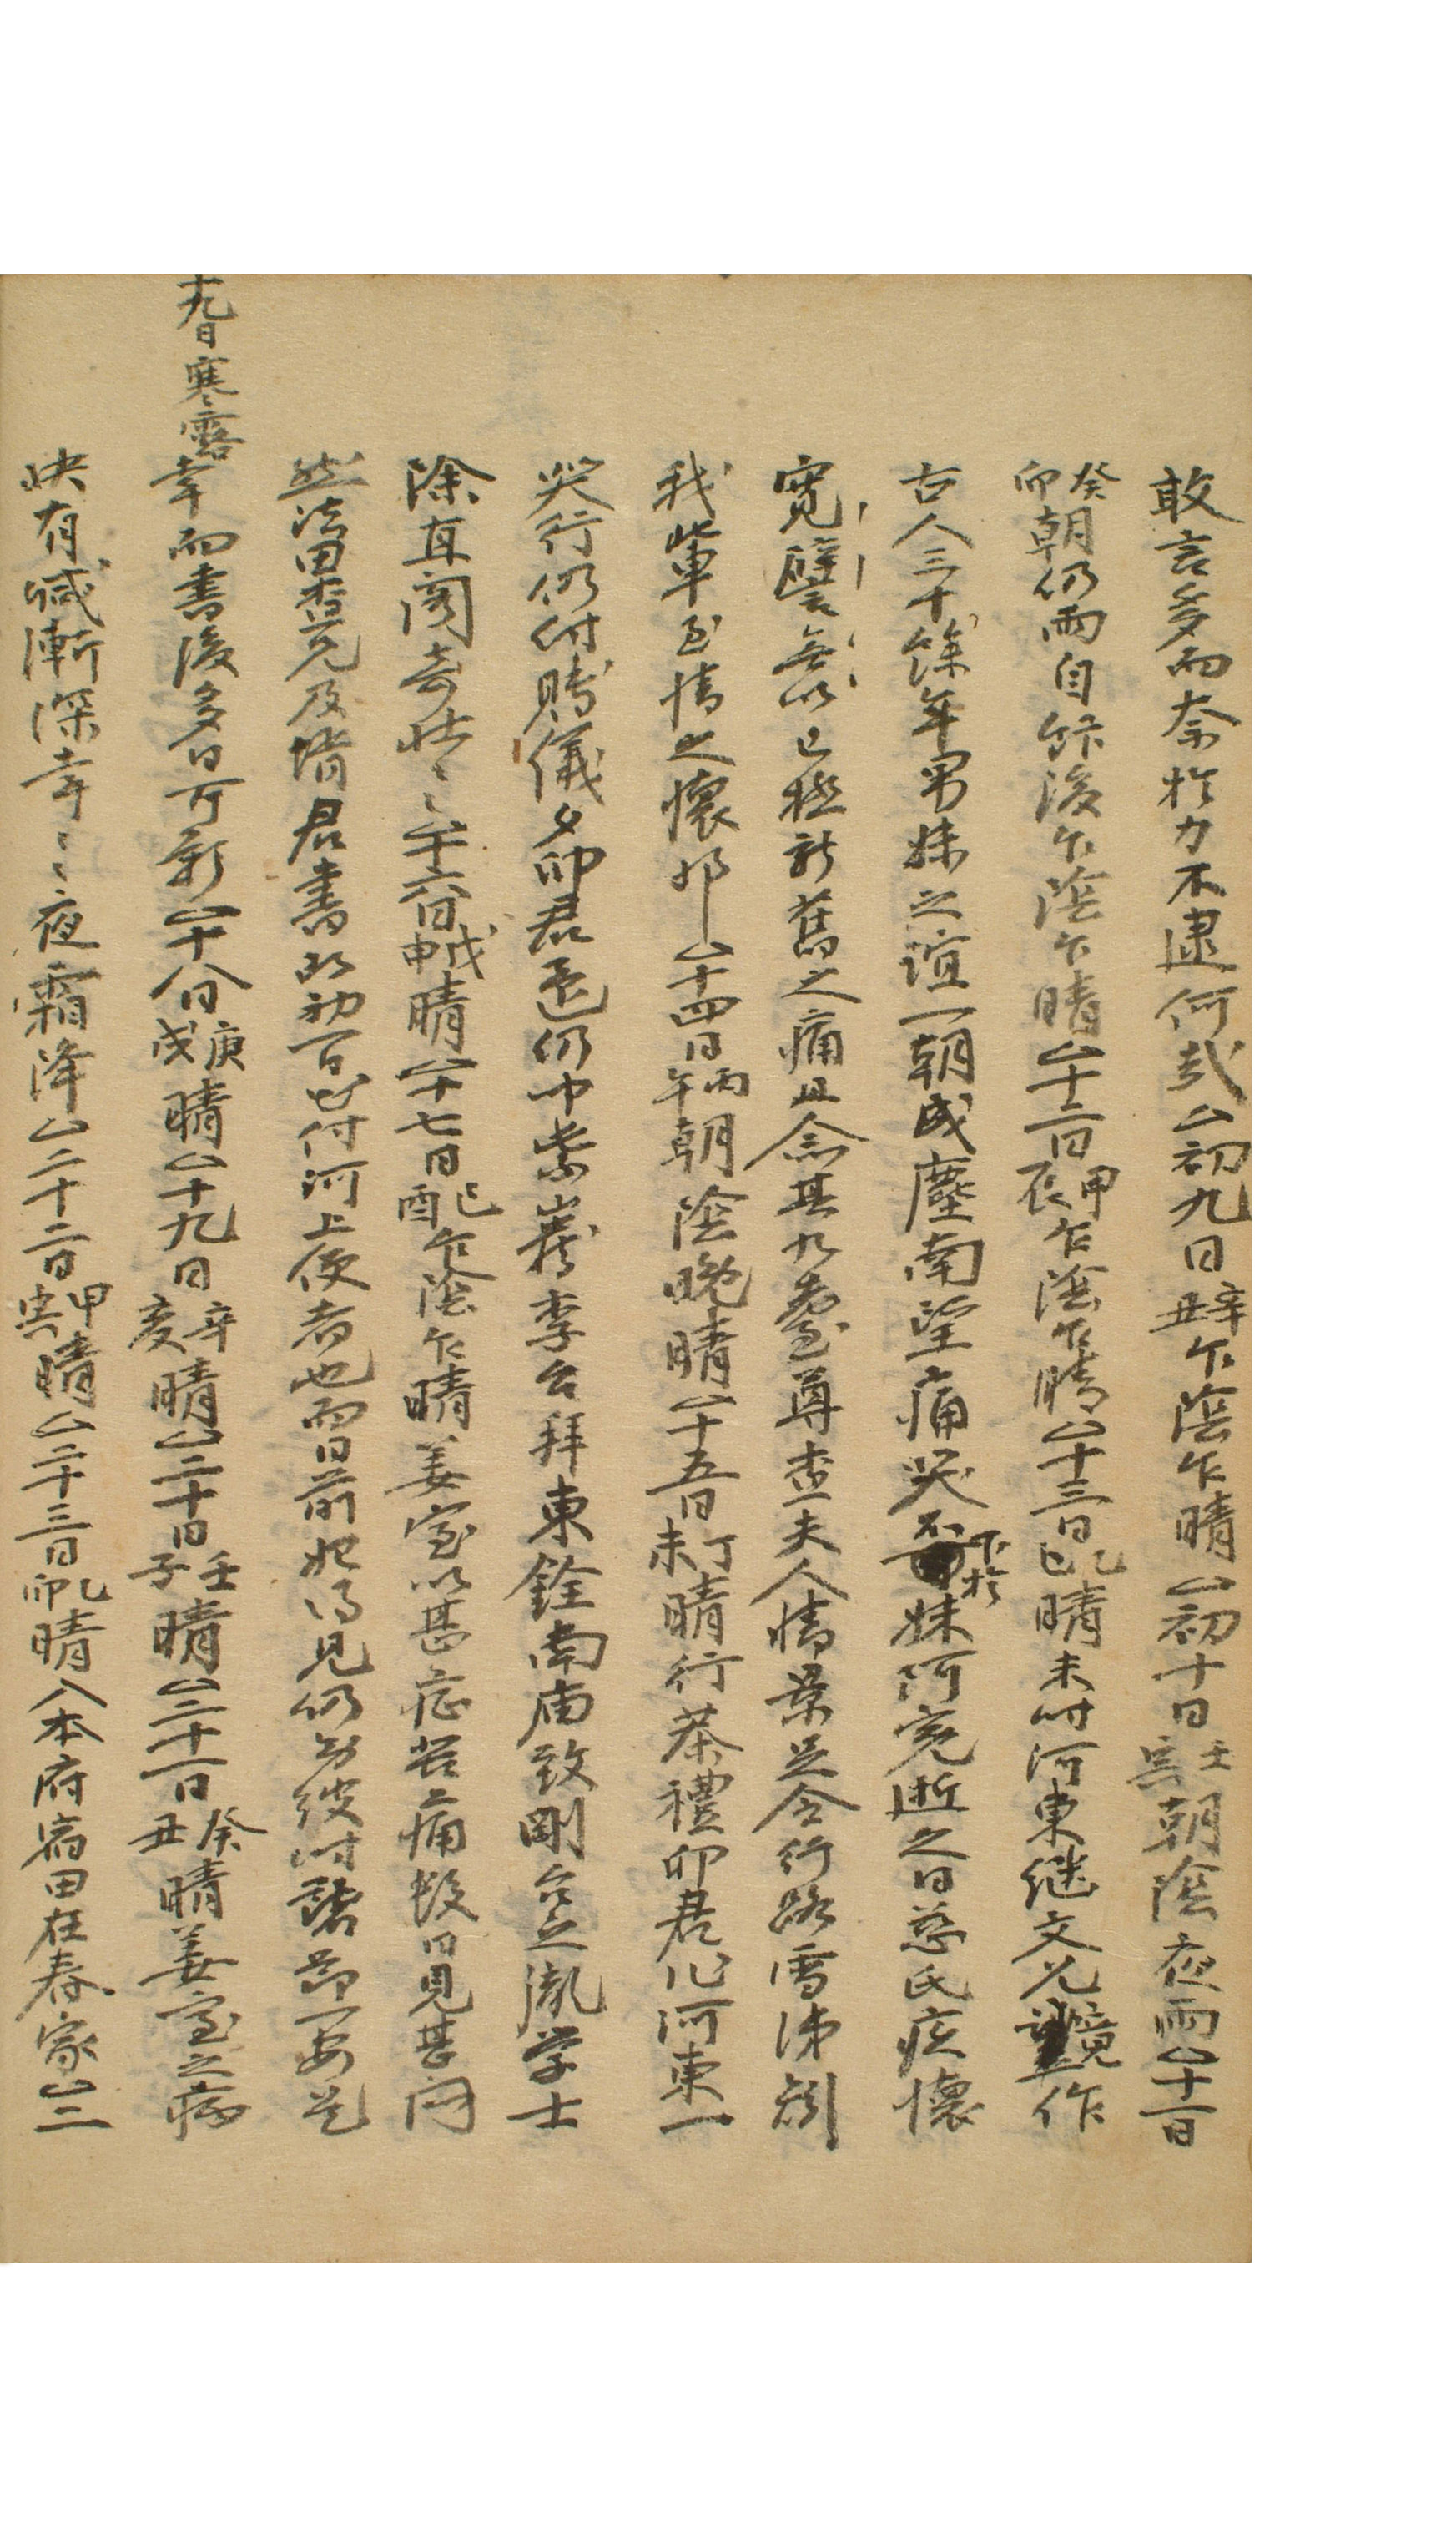 敢言多而奈於力不逮何哉△初九日辛丑乍陰乍晴△初十日壬寅朝陰夜雨△十一日
癸卯朝仍雨自飯後乍陰乍晴△十二日甲辰乍陰乍晴△十三日乙巳晴未時河東継文兄境作
古人三十餘年男妹之誼一朝成塵南望痛哭不下於妹阿冤逝之日慈氏疚懷
寬譬無以已極新舊之痛且念其九耋尊査夫人情景足令行路雪涕矧
我輩至情之懷耶△十四日丙午朝陰晩晴△十五日丁未晴行茶禮卯君作河東一
哭行仍付賻儀夕卯君還仍中崇巖李台拜東銓南廟致剛台之胤学士
除直閣奇壯〻△十六日戊申晴△十七日己酉乍陰乍晴姜室以甚症苦痛数日見甚悶
然法田査兄及壻君書即初一日出付河上便者也而日前始得見仍為彼時諸節一安是
幸而書後多日可新△十八日庚戌晴△十九日辛亥晴△二十日壬子晴△二十一日癸丑晴姜室之病
十九日寒露
快有減漸深幸〻夜霜降△二十二日甲寅晴△二十三日乙卯晴入本府宿田在春家△二